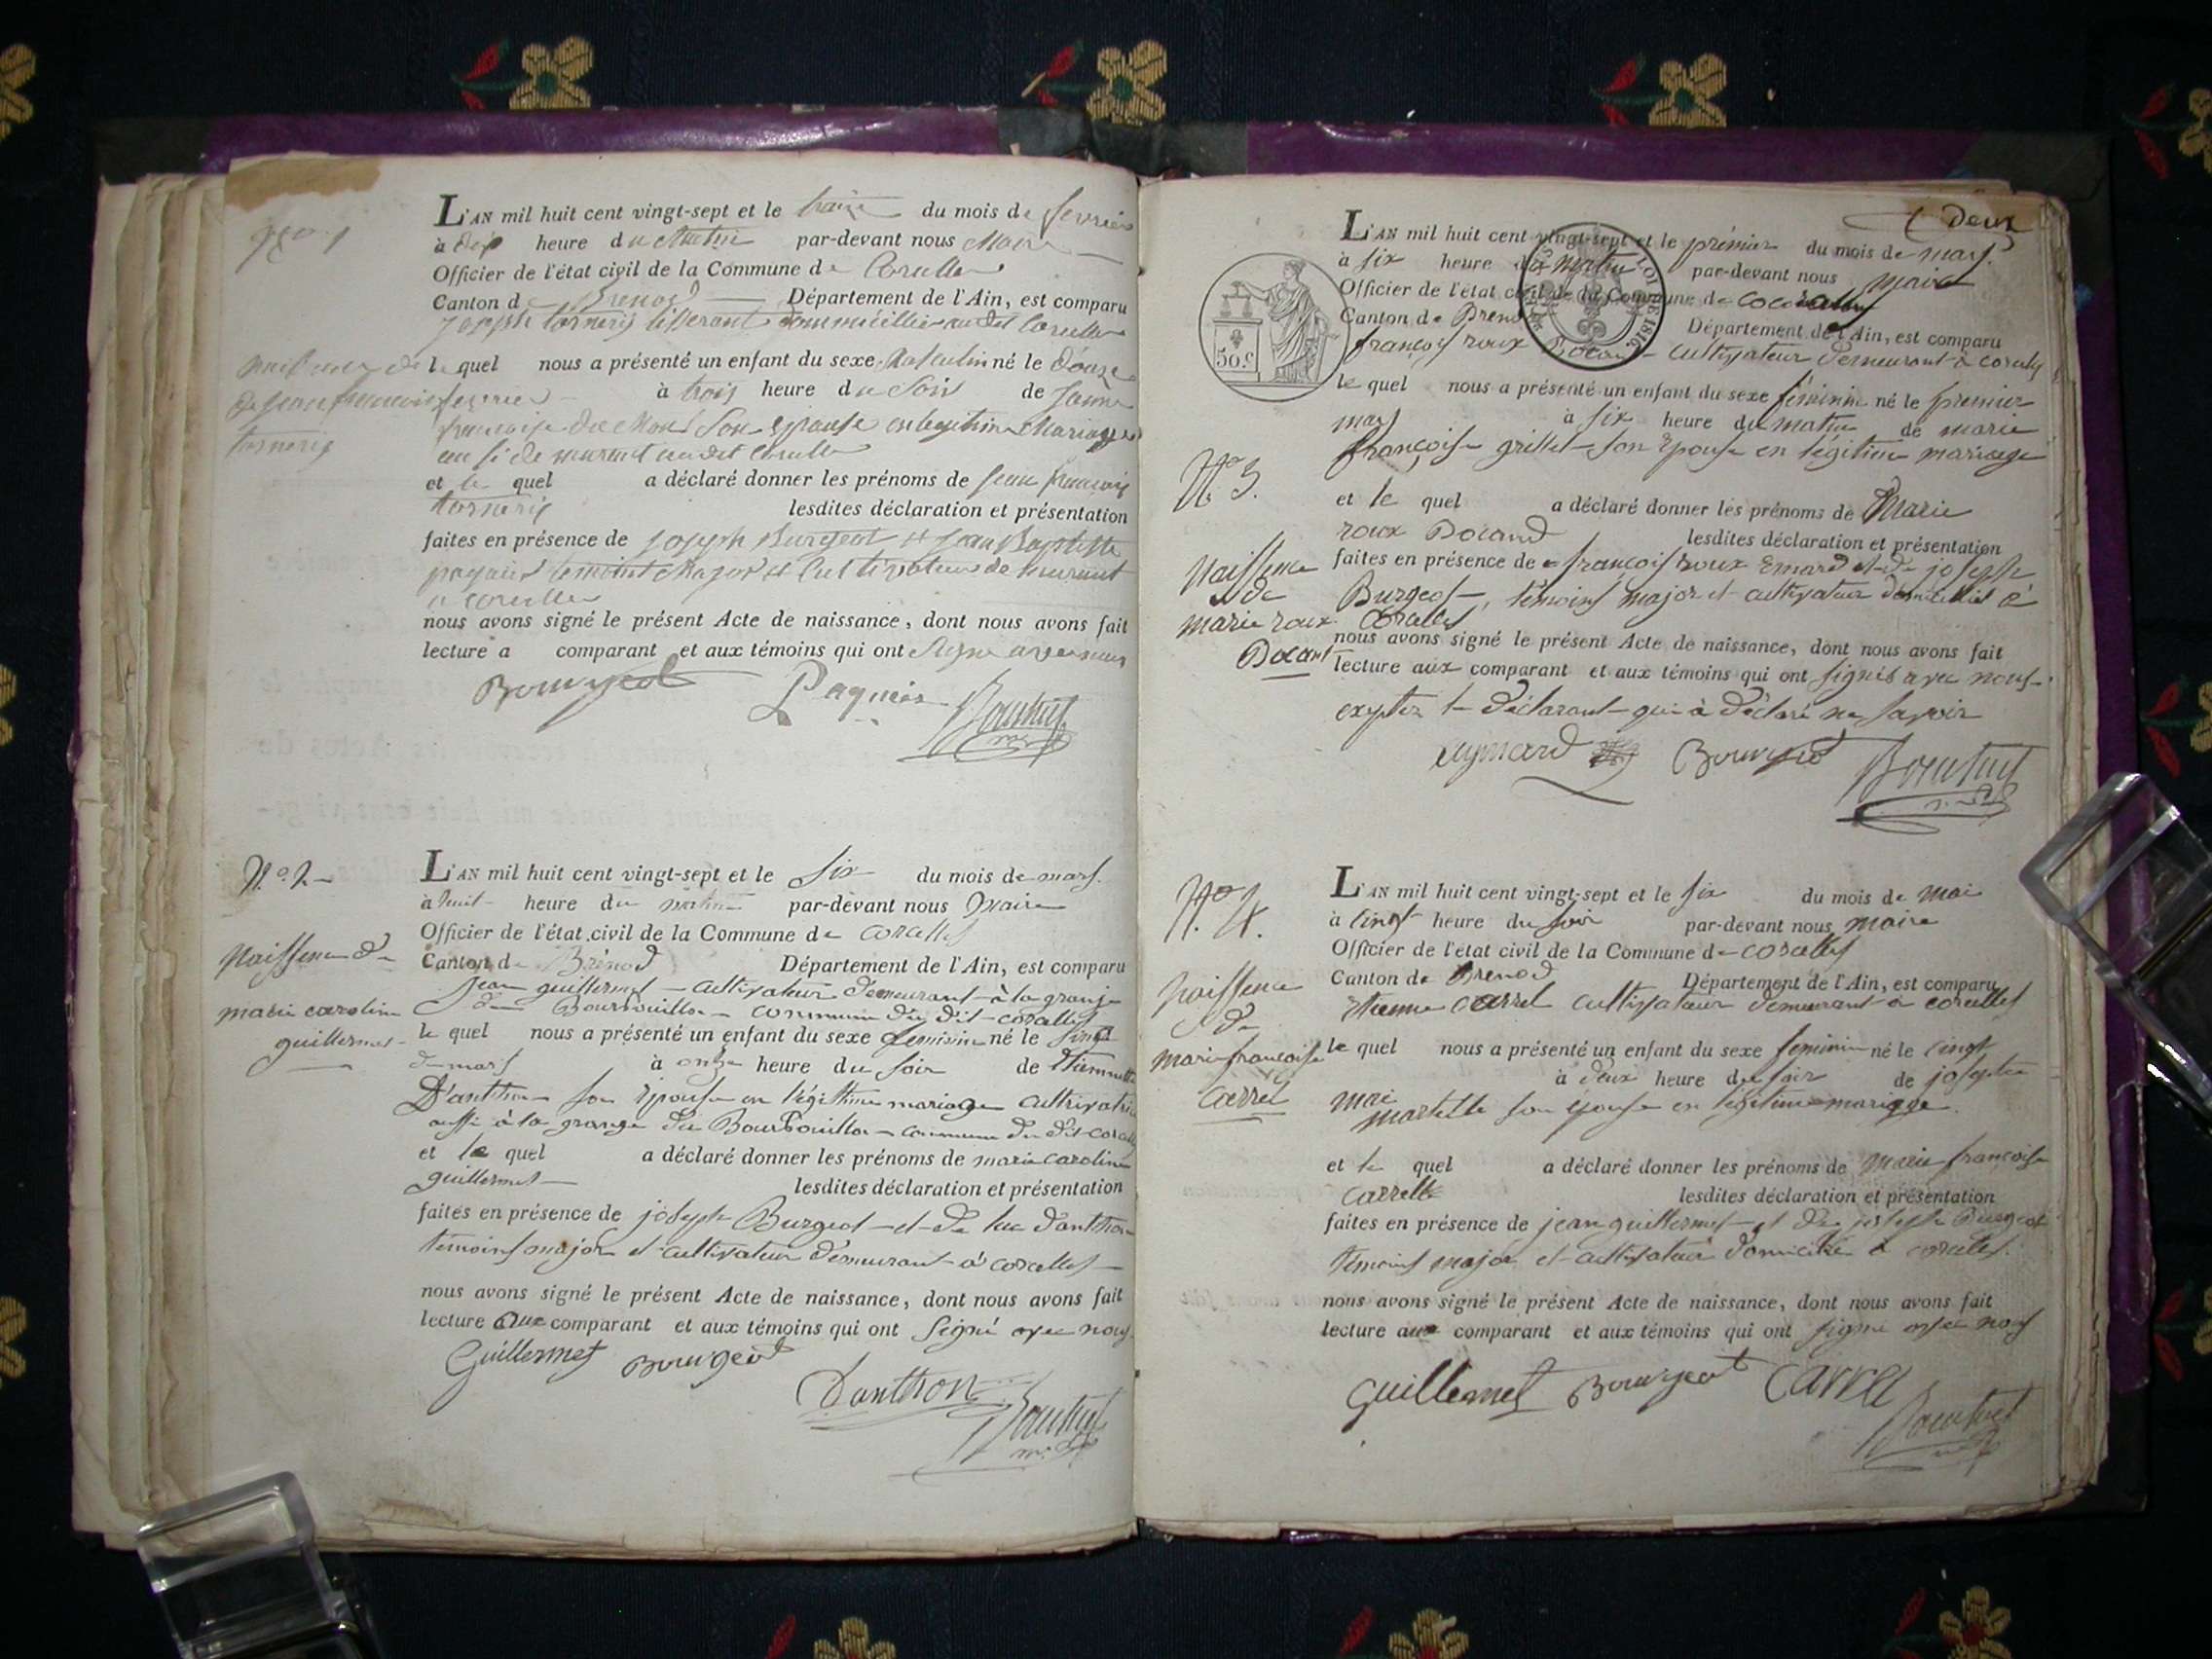 No 1
L'AN mil huit cent vingt-sept et le treize du mois de fevrier
à dix heure du Matin par-devant nous Maire
Officier de l'état civil de la Commune de Corcelle
Canton de Brenod Département de l'Ain, est comparu
Joseph torneris tisserant audit Corcelle
le quel nous a présenté un enfant du sexe Masculin né le douze
fevrier à trois heure du Soir de Jeanne
francoise Son epouse en legitime Mariage
audit Corcelle
et le quel a déclaré donner les prénoms de jean francois
torneris lesdites déclaration et présentation
faites en présence de joseph Burgeot et Jean Baptiste
temoint Major et Cultivateur demeurant
a corcelle
nous avons signé le présent Acte de naissance, dont nous avons fait
lecture a comparant et aux témoins qui ont Signe avec nous
naissance de
de jean francois
torneris
Bourgeot
N.o 2
L'AN mil huit cent vingt-sept et le six du mois de mars
à huit heure du matin par-devant nous Maire
Officier de l'état civil de la Commune de corcelles
Canton de Brénod Département de l'Ain, est comparu
jean guillermet cultivateur demeurant à la grange
du Bourbouillon commune du dit corcelles
le quel nous a présenté un enfant du sexe feminin né le cinq
de mars à onze heure du soir de Etiennette
D'anthon son épouse en légitime mariage cultivatrice
aussi à la grange du Bourbouillon commune du dit corcelles
et le quel a déclaré donner les prénoms de marie caroline
guillermet lesdites déclaration et présentation
faites en présence de joseph Burgeot et de luc danthon
témoins major et cultivateur demeurant à corcelles
nous avons signé le présent Acte de naissance, dont nous avons fait
lecture aux comparant et aux témoins qui ont signé avec nous
naissence de
marie caroline
guillermet
Guillermet Bourgeot
Danthon
deux
L'AN mil huit cent vingt-sept et le premier du mois de mars
à six heure du matin par-devant nous maire
Officier de l'état civil de la Commune de
Canton de Brenod Département de l'Ain, est comparu
françois roux Docand cultivateur demeurant à corcelles
le quel nous a présenté un enfant du sexe féminin né le premier
mars à six heure du matin de marie
françoise grillet son épouse en légitime mariage
et le quel a déclaré donner les prénoms de Marie
roux Docand lesdites déclaration et présentation
faites en présence de françois roux Emard et de joseph
Burgeot, témoins major et cultivateur domicilié à
corcelles
nous avons signé le présent Acte de naissance, dont nous avons fait
lecture aux comparant et aux témoins qui ont signés avec nous
exepter le déclarant qui à déclaré ne savoir
LOI DE 1816
50c
No 3.
naissence
de
marie roux
Docant
aymard Bourgeot
No 4.
L'AN mil huit cent vingt-sept et le six du mois de mai
à cinq heure du soir par-devant nous maire
Officier de l'état civil de la Commune de corcelles
Canton de Brenod Département de l'Ain, est comparu
Etienne carrel cultivateur demeurant a corcelles
le quel nous a présenté un enfant du sexe feminin né le cinq
mai à deux heure du soir de josephe
martelle son épouse en légitime mariage.
et le quel a déclaré donner les prénoms de marie françoise
carrelle lesdites déclaration et présentation
faites en présence de jean guillermet et de joseph Burgeot
témoins major et cultivateur domicilié à corcelles.
nous avons signé le présent Acte de naissance, dont nous avons fait
lecture aux comparant et aux témoins qui ont signé avec nous
naissence
de
marie francoise
Carrel
Guillermet Bourgeot Carrel